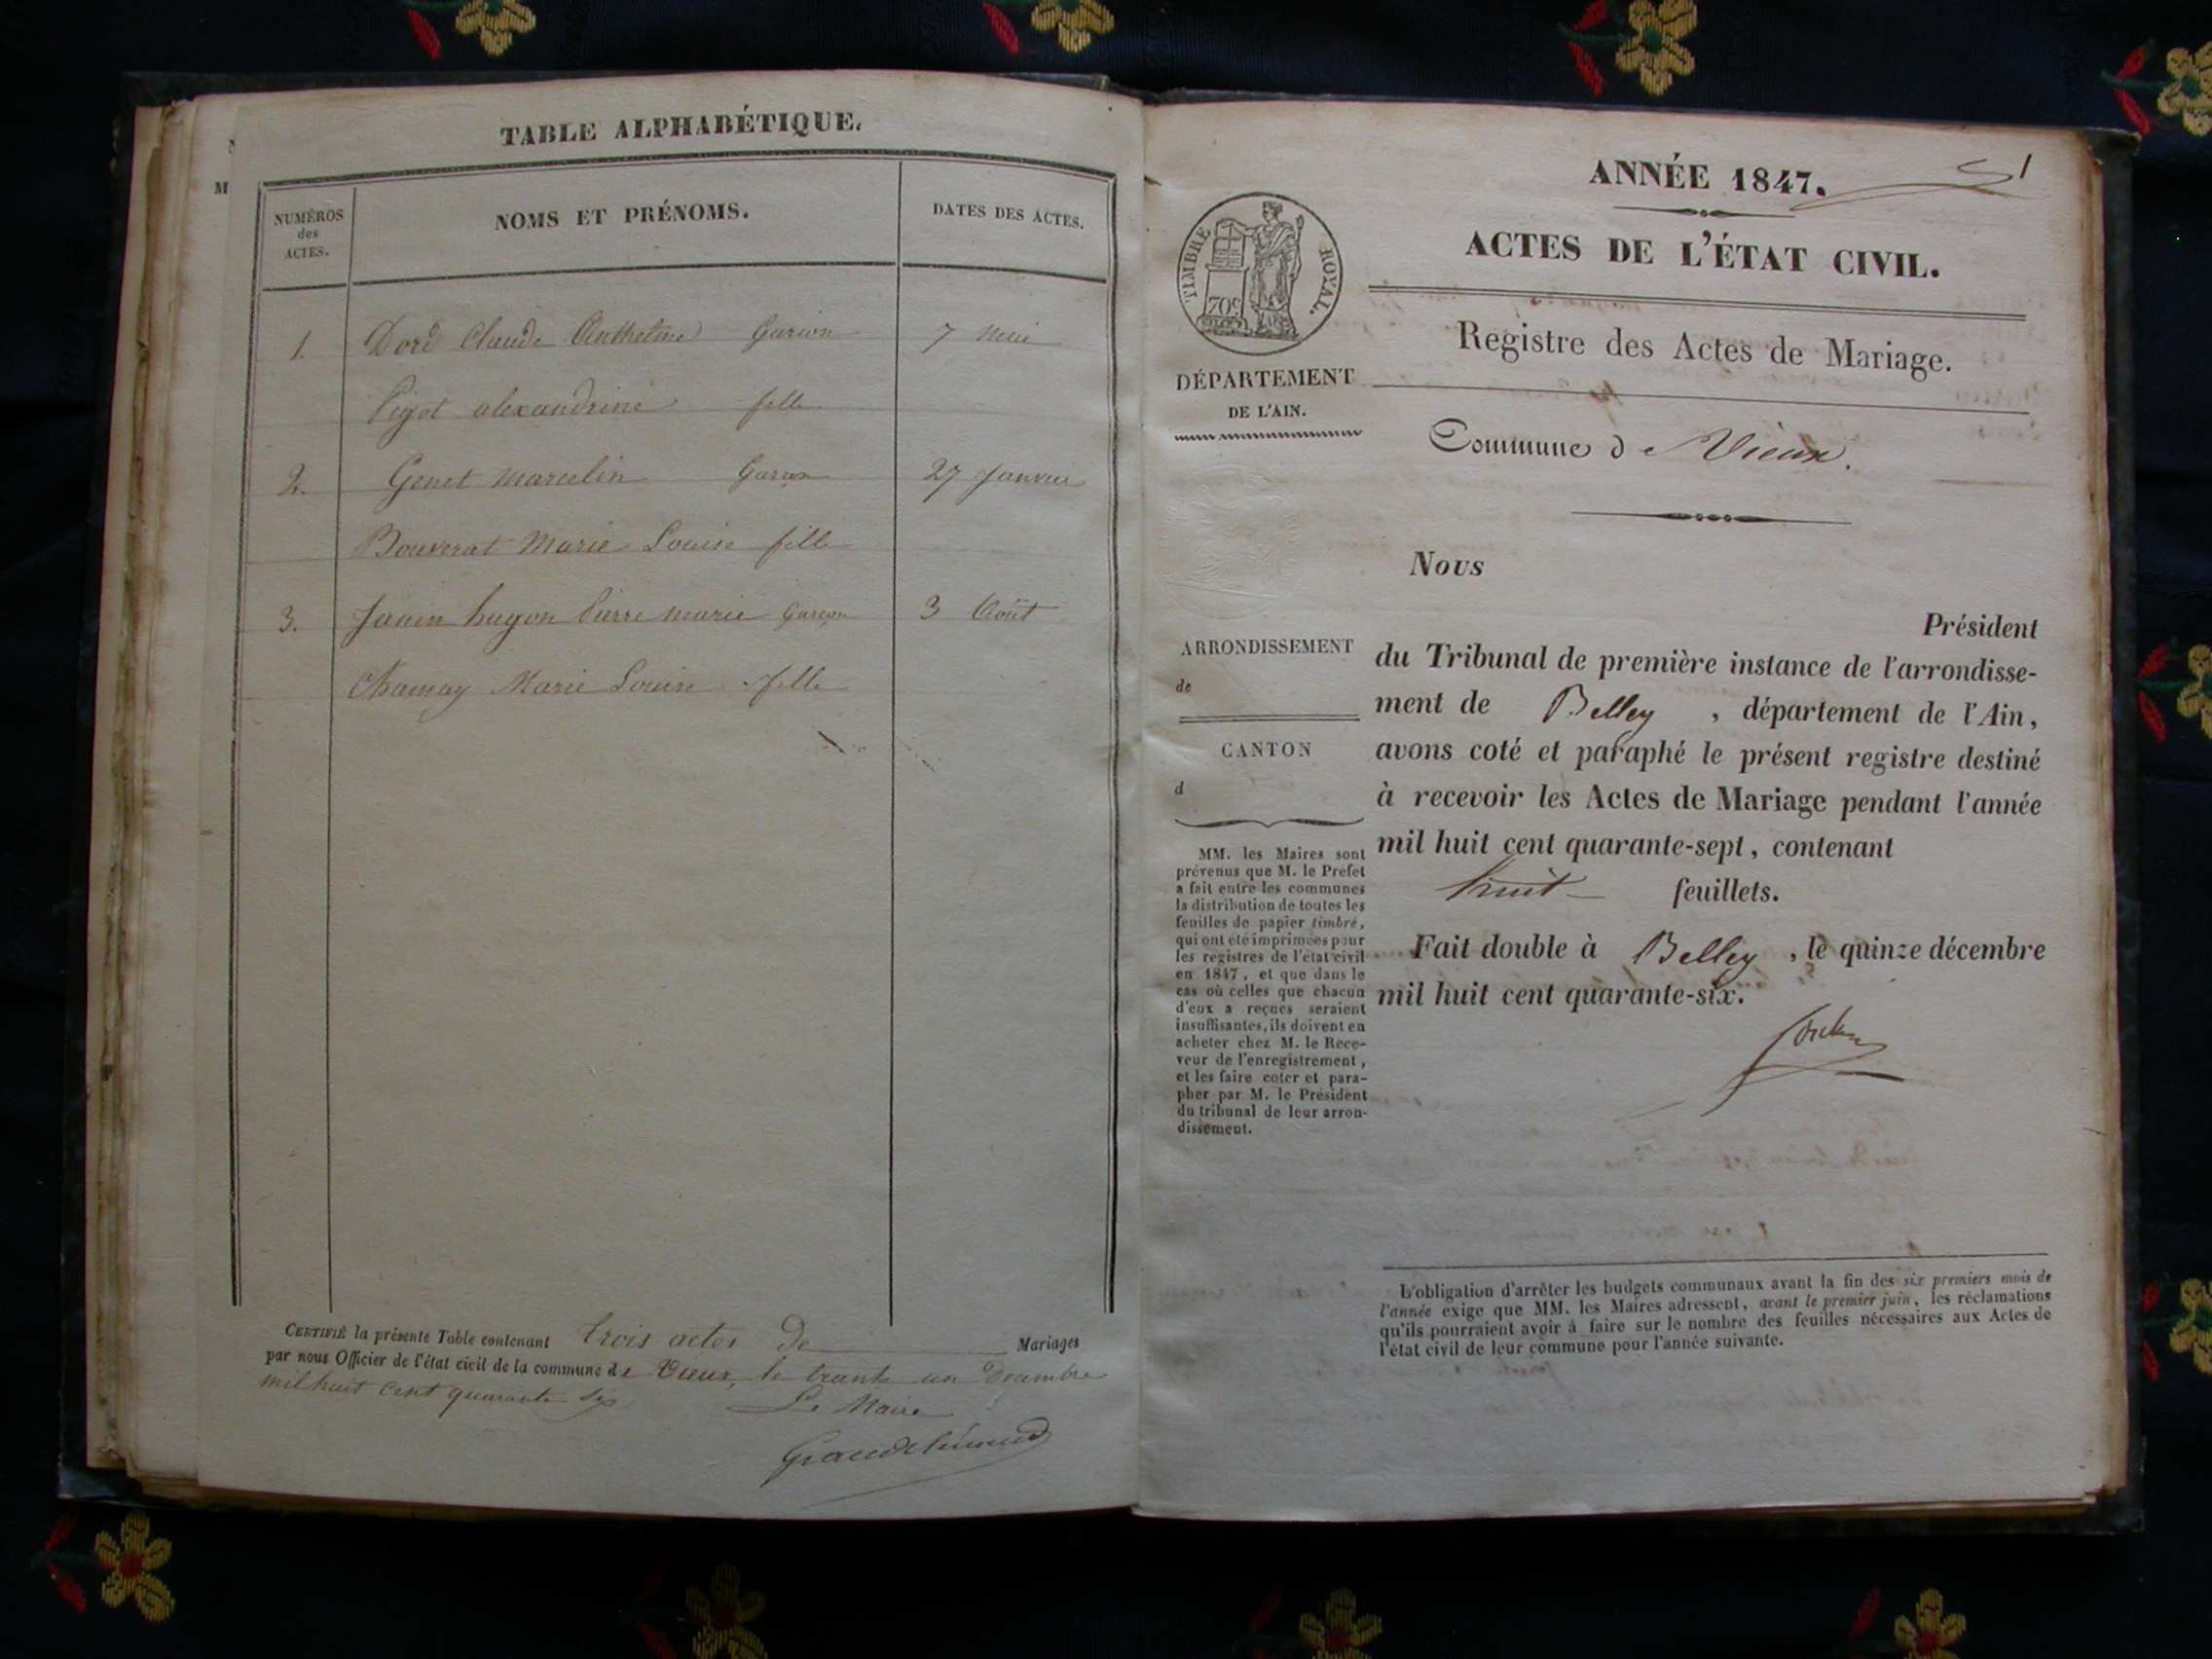 TABLE ALPHABÉTIQUE.
M
NUMÉROS
des
ACTES.
NOMS ET PRÉNOMS.
DATES DES ACTES.
1. Dord Claude Anthelme Garçon 7 Mai
Pigot alexandrine fille
2. Genet Marcelin Garçon 27 Janvier
Bouverat Marie Louise fille
3. Janin hugon Pierre Marie Garçon 3 Août
Chamay Marie Louise fille
CERTIFIÉ la présente Table contenant trois actes de Mariages
par nous Officier de l'état civil de la commune de Vieux, le trente un Décembre
mil huit cent quarante six
Le Maire
ANNÉE 1847.
1
ACTES DE L'ÉTAT CIVIL.
TIMBRE ROYAL.
70c
Registre des Actes de Mariage.
DÉPARTEMENT
DE L'AIN.
Commune de Vieux.
Nous
Président
ARRONDISSEMENT
de
CANTON
d
du Tribunal de première instance de l'arrondisse-
ment de Belley , département de l'Ain,
avons coté et paraphé le présent registre destiné
à recevoir les Actes de Mariage pendant l'année
mil huit cent quarante-sept, contenant
huit feuillets.
Fait double à Belley , le quinze décembre
mil huit cent quarante-six.
MM. les Maires sont
prévenus que M. le Préfet
a fait entre les communes
la distribution de toutes les
feuilles de papier timbré,
qui ont été imprimées pour
les registres de l'état civil
en 1847, et que dans le
cas où celles que chacun
d'eux a reçues seraient
insuffisantes, ils doivent en
acheter chez M. le Rece-
veur de l'enregistrement,
et les faire coter et para-
pher par M. le Président
du tribunal de leur arron-
dissement.
L'obligation d'arrêter les budgets communaux avant la fin des six premiers mois de
l'année exige que MM. les Maires adressent, avant le premier juin, les réclamations
qu'ils pourraient avoir à faire sur le nombre des feuilles nécessaires aux Actes de
l'état civil de leur commune pour l'année suivante.